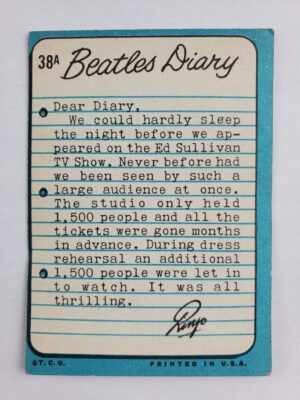 38A Beatles Diary
Dear Diary,
We could hardly sleep
the night before we ap-
peared on the Ed Sullivan
TV Show. Never before had
we been seen by such a
large audience at once.
The studio only held
1,500 people and all the
tickets were gone months
in advance. During dress
rehearsal an additional
1,500 people were let in
to watch. It was all
thrilling.
Ringo
©T.C.G. PRINTED IN U.S.A.